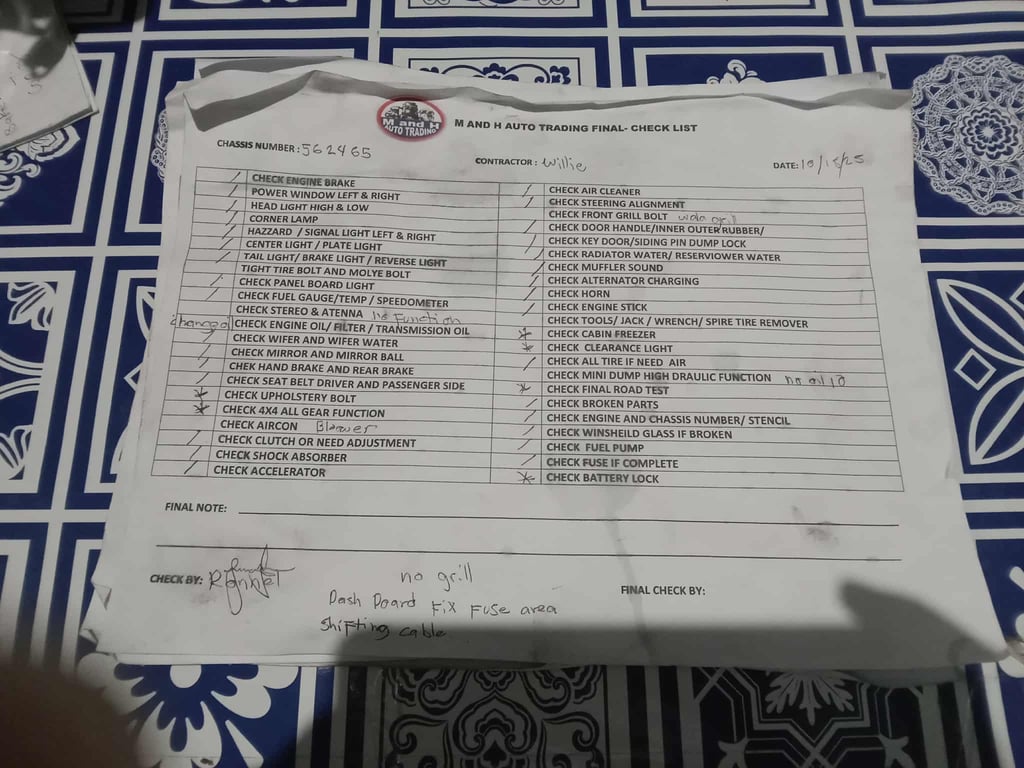 M and H
AUTO TRADING
M AND H AUTO TRADING FINAL- CHECK LIST
CHASSIS NUMBER: 562465
CONTRACTOR: Willie
DATE: 10/15/25
/ CHECK ENGINE BRAKE
/ POWER WINDOW LEFT & RIGHT
/ HEAD LIGHT HIGH & LOW
/ CORNER LAMP
/ HAZZARD / SIGNAL LIGHT LEFT & RIGHT
/ CENTER LIGHT / PLATE LIGHT
/ TAIL LIGHT/ BRAKE LIGHT / REVERSE LIGHT
TIGHT TIRE BOLT AND MOLYE BOLT
/ CHECK PANEL BOARD LIGHT
/ CHECK FUEL GAUGE/TEMP / SPEEDOMETER
CHECK STEREO & ATENNA no Function
CHECK ENGINE OIL/ FILTER / TRANSMISSION OIL
/ CHECK WIFER AND WIFER WATER
/ CHECK MIRROR AND MIRROR BALL
/ CHEK HAND BRAKE AND REAR BRAKE
/ CHECK SEAT BELT DRIVER AND PASSENGER SIDE
* CHECK UPHOLSTERY BOLT
* CHECK 4X4 ALL GEAR FUNCTION
CHECK AIRCON Blower
/ CHECK CLUTCH OR NEED ADJUSTMENT
/ CHECK SHOCK ABSORBER
/ CHECK ACCELERATOR
/ CHECK AIR CLEANER
/ CHECK STEERING ALIGNMENT
CHECK FRONT GRILL BOLT wala grill
/ CHECK DOOR HANDLE/INNER OUTER RUBBER/
/ CHECK KEY DOOR/SIDING PIN DUMP LOCK
/ CHECK RADIATOR WATER/ RESERVIOWER WATER
/ CHECK MUFFLER SOUND
/ CHECK ALTERNATOR CHARGING
/ CHECK HORN
/ CHECK ENGINE STICK
CHECK TOOLS/ JACK / WRENCH/ SPIRE TIRE REMOVER
* CHECK CABIN FREEZER
* CHECK CLEARANCE LIGHT
/ CHECK ALL TIRE IF NEED AIR
CHECK MINI DUMP HIGH DRAULIC FUNCTION no oil
* CHECK FINAL ROAD TEST
/ CHECK BROKEN PARTS
/ CHECK ENGINE AND CHASSIS NUMBER/ STENCIL
/ CHECK WINSHEILD GLASS IF BROKEN
/ CHECK FUEL PUMP
/ CHECK FUSE IF COMPLETE
* CHECK BATTERY LOCK
FINAL NOTE:
CHECK BY:
FINAL CHECK BY:
no grill
Dash Board Fix Fuse area
Shifting cable